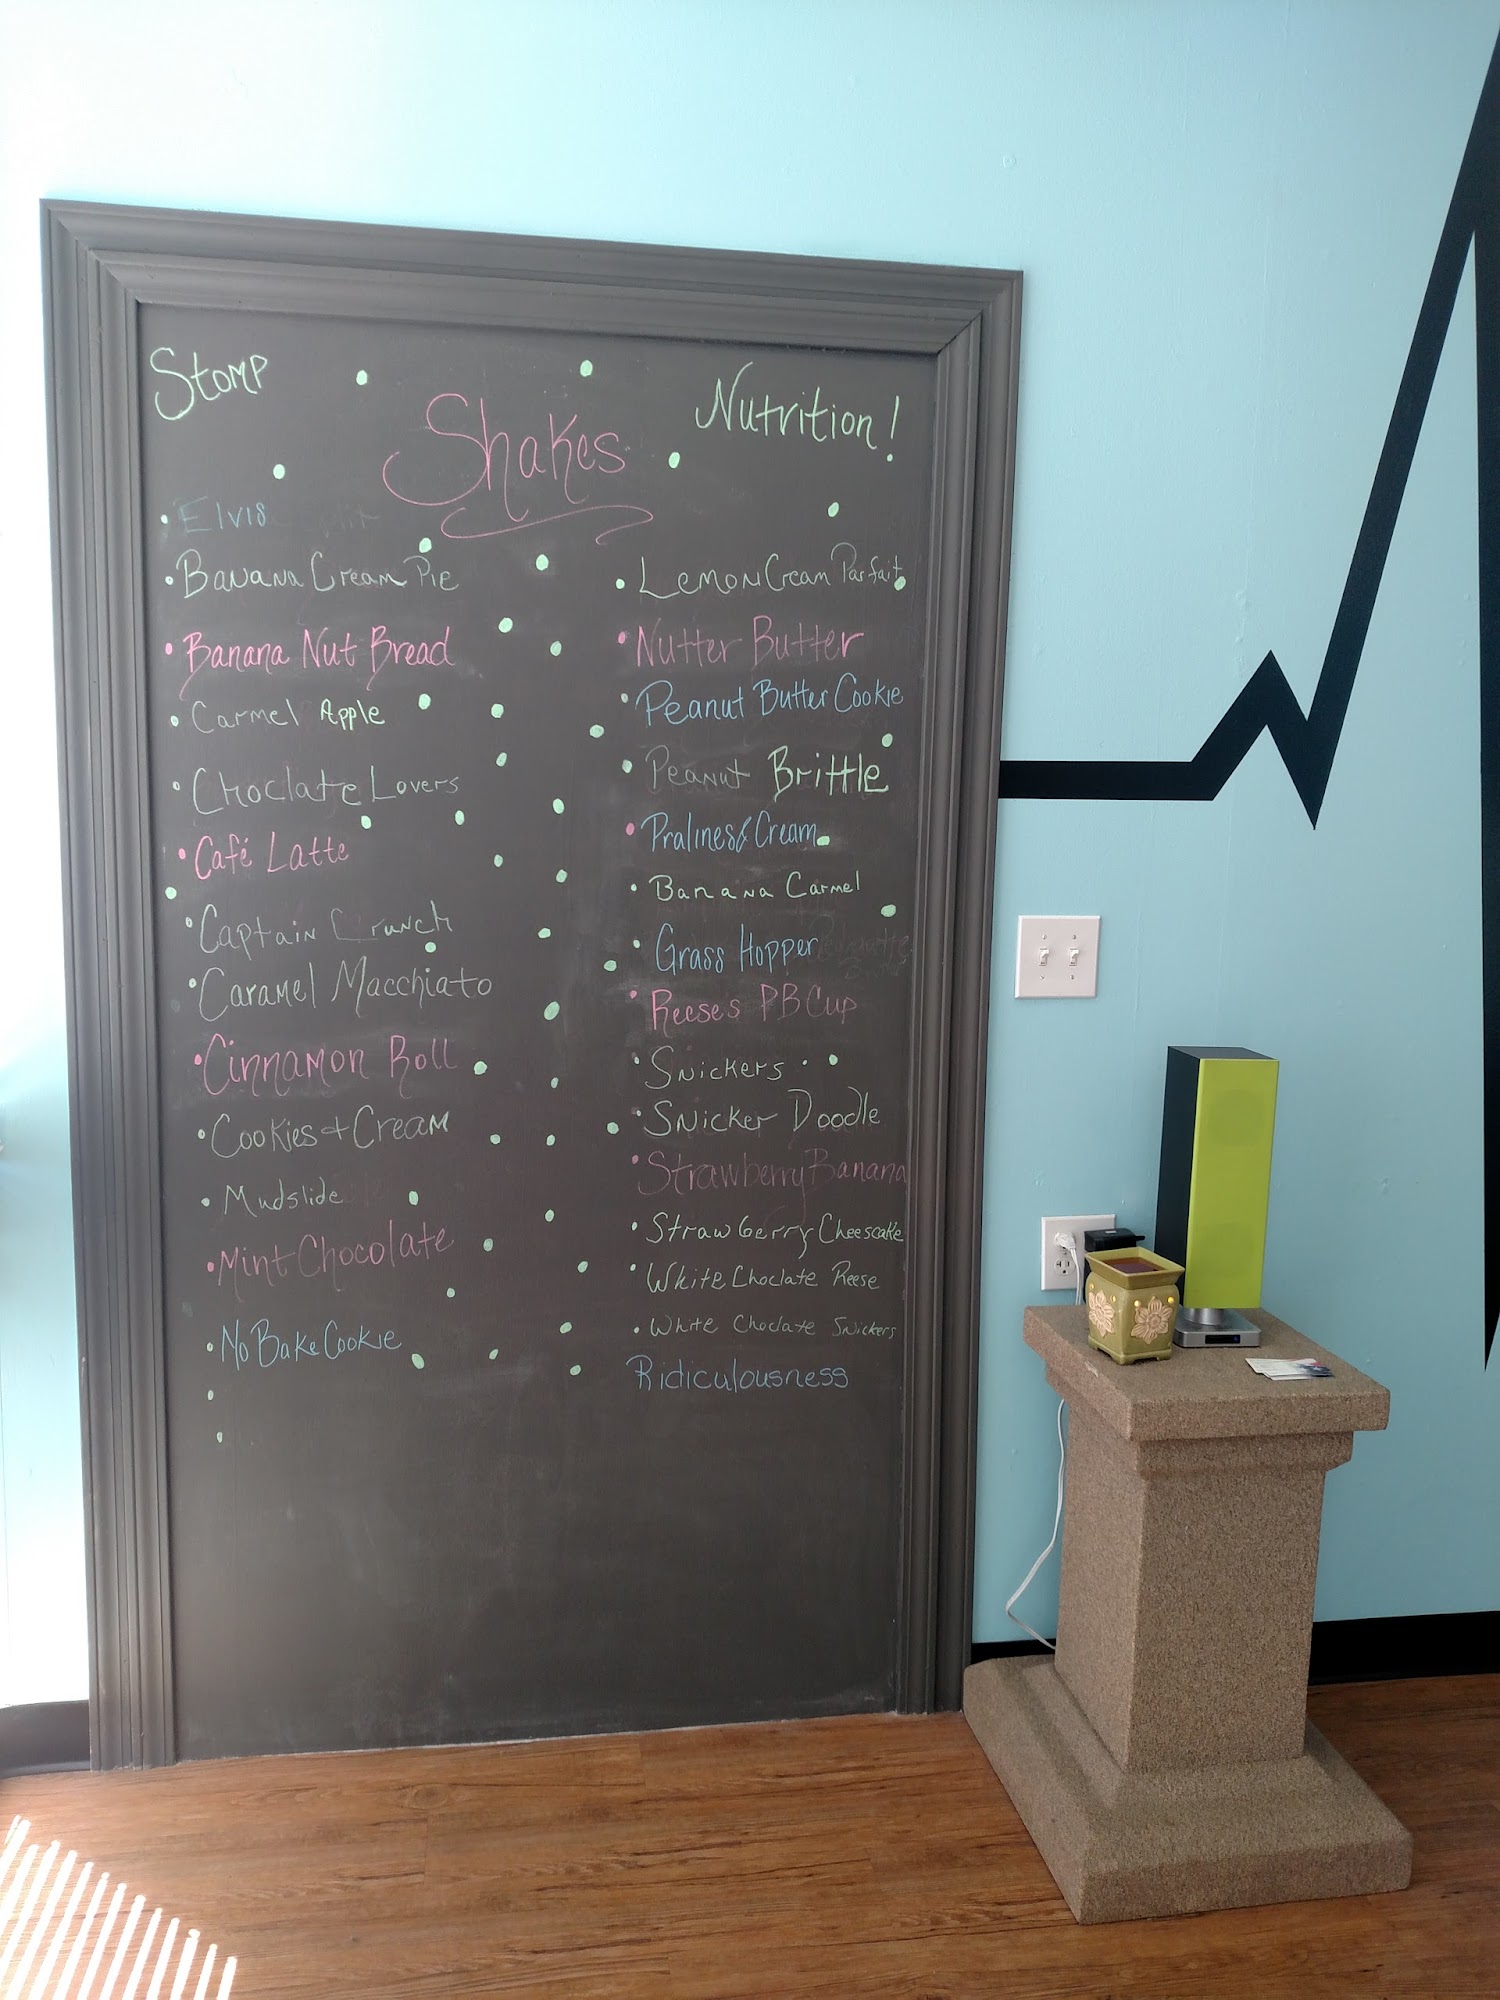 Stomp
Nutrition!
Shakes
Elvis
Banana Cream Pie
Banana Nut Bread
Carmel Apple
Choclate Lovers
Café Latte
Captain Crunch
Caramel Macchiato
Cinnamon Roll
Cookies & Cream
Mudslide
Mint Chocolate
No Bake Cookie
Lemon Cream Parfait
Nutter Butter
Peanut Butter Cookie
Peanut Brittle
Pralines & Cream
Banana Carmel
Grass Hopper
Reese's PB Cup
Snickers
Snicker Doodle
Strawberry Banana
Strawberry Cheescake
White Choclate Reese
White Choclate Snickers
Ridiculousness